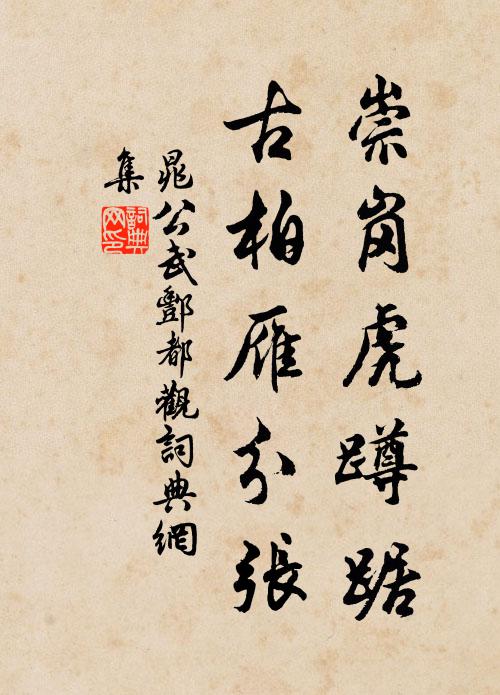 崇岗虎蹲踞
古柏雁分張
晁公武酆都觀詞典網
集
詞典
网印